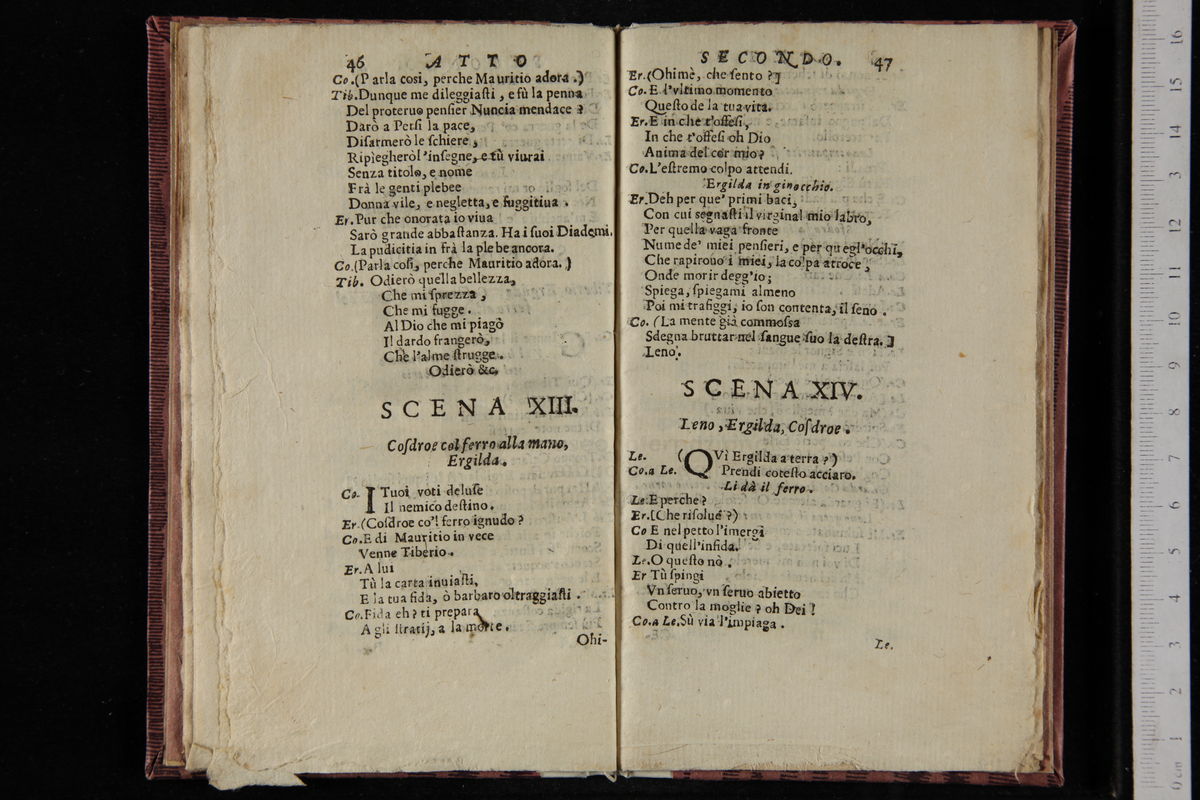 46 ATTO
Co.(Parla cosi, perche Mauritio adora.)
Tib.Dunque me dileggiaſti, e fù la penna
Del proteruo penſier Nuncia mendace?
Darò a Perſi la pace,
Diſarmerò le ſchiere,
Ripiegherol'inſegne, e tù viurai
Senza titolo, e nome
Frà le genti plebee
Donna vile, e negletta, e fuggitiua.
Er.Pur che onorata io viua
Sarò grande abbaſtanza. Ha i ſuoi Diademi.
La pudicitia in frà la plebe ancora.
Co.(Parla coſi, perche Mauritio adora.)
Tib. Odierò quella bellezza,
Che mi ſprezza,
Che mi fugge.
Al Dio che mi piagò
Il dardo frangerò,
Che l'alme ſtrugge.
Odierò &c.
SCENA XIII.
Coſdroe col ferro alla mano,
Ergilda.
Co. I Tuoi voti deluſe
Il nemico deſtino.
Er.(Coſdroe co'l ferro ignudo?
Co.E di Mauritio in vece
Venne Tiberio.
Er.A lui
Tù la carta inuiaſti,
E la tua fida, ò barbaro oltraggiaſti.
Co.Fida eh? ti prepara
A gli ſtratij, a la morte.
Ohi-
SECONDO. 47
Er.(Ohimè, che ſento?)
Co.E l'vltimo momento
Queſto de la tua vita.
Er.E in che t'offeſi,
In che t'offeſi oh Dio
Anima del cor mio?
Co.L'eſtremo colpo attendi.
Ergilda in ginocchio.
Er.Deh per que' primi baci,
Con cui segnaſti il virginal mio labro,
Per quella vaga fronte
Nume de' miei penſieri, e per quegl'occhi,
Che rapirono i miei, la colpa atroce,
Onde morir degg'io;
Spiega, ſpiegami almeno
Poi mi trafiggi, io ſon contenta, il ſeno.
Co. (La mente già commoſſa
Sdegna bruttar nel ſangue ſuo la deſtra.)
Leno.
SCENA XIV.
Leno, Ergilda, Coſdroe.
Le. (QVì Ergilda a terra?)
Co.a Le. Prendi coteſto acciaro.
Li dà il ferro.
Le.E perche?
Er.[Che riſolue?)
Co E nel petto l'imergi
Di quell'infida.
Le.O queſto nò.
Er Tù ſpingi
Vn ſeruo, vn ſeruo abietto
Contro la moglie? oh Dei!
Co.a Le.Sù via l'impiaga.
Le.
0 cm 1 2 3 4 5 6 7 8 9 10 11 12 13 14 15 16